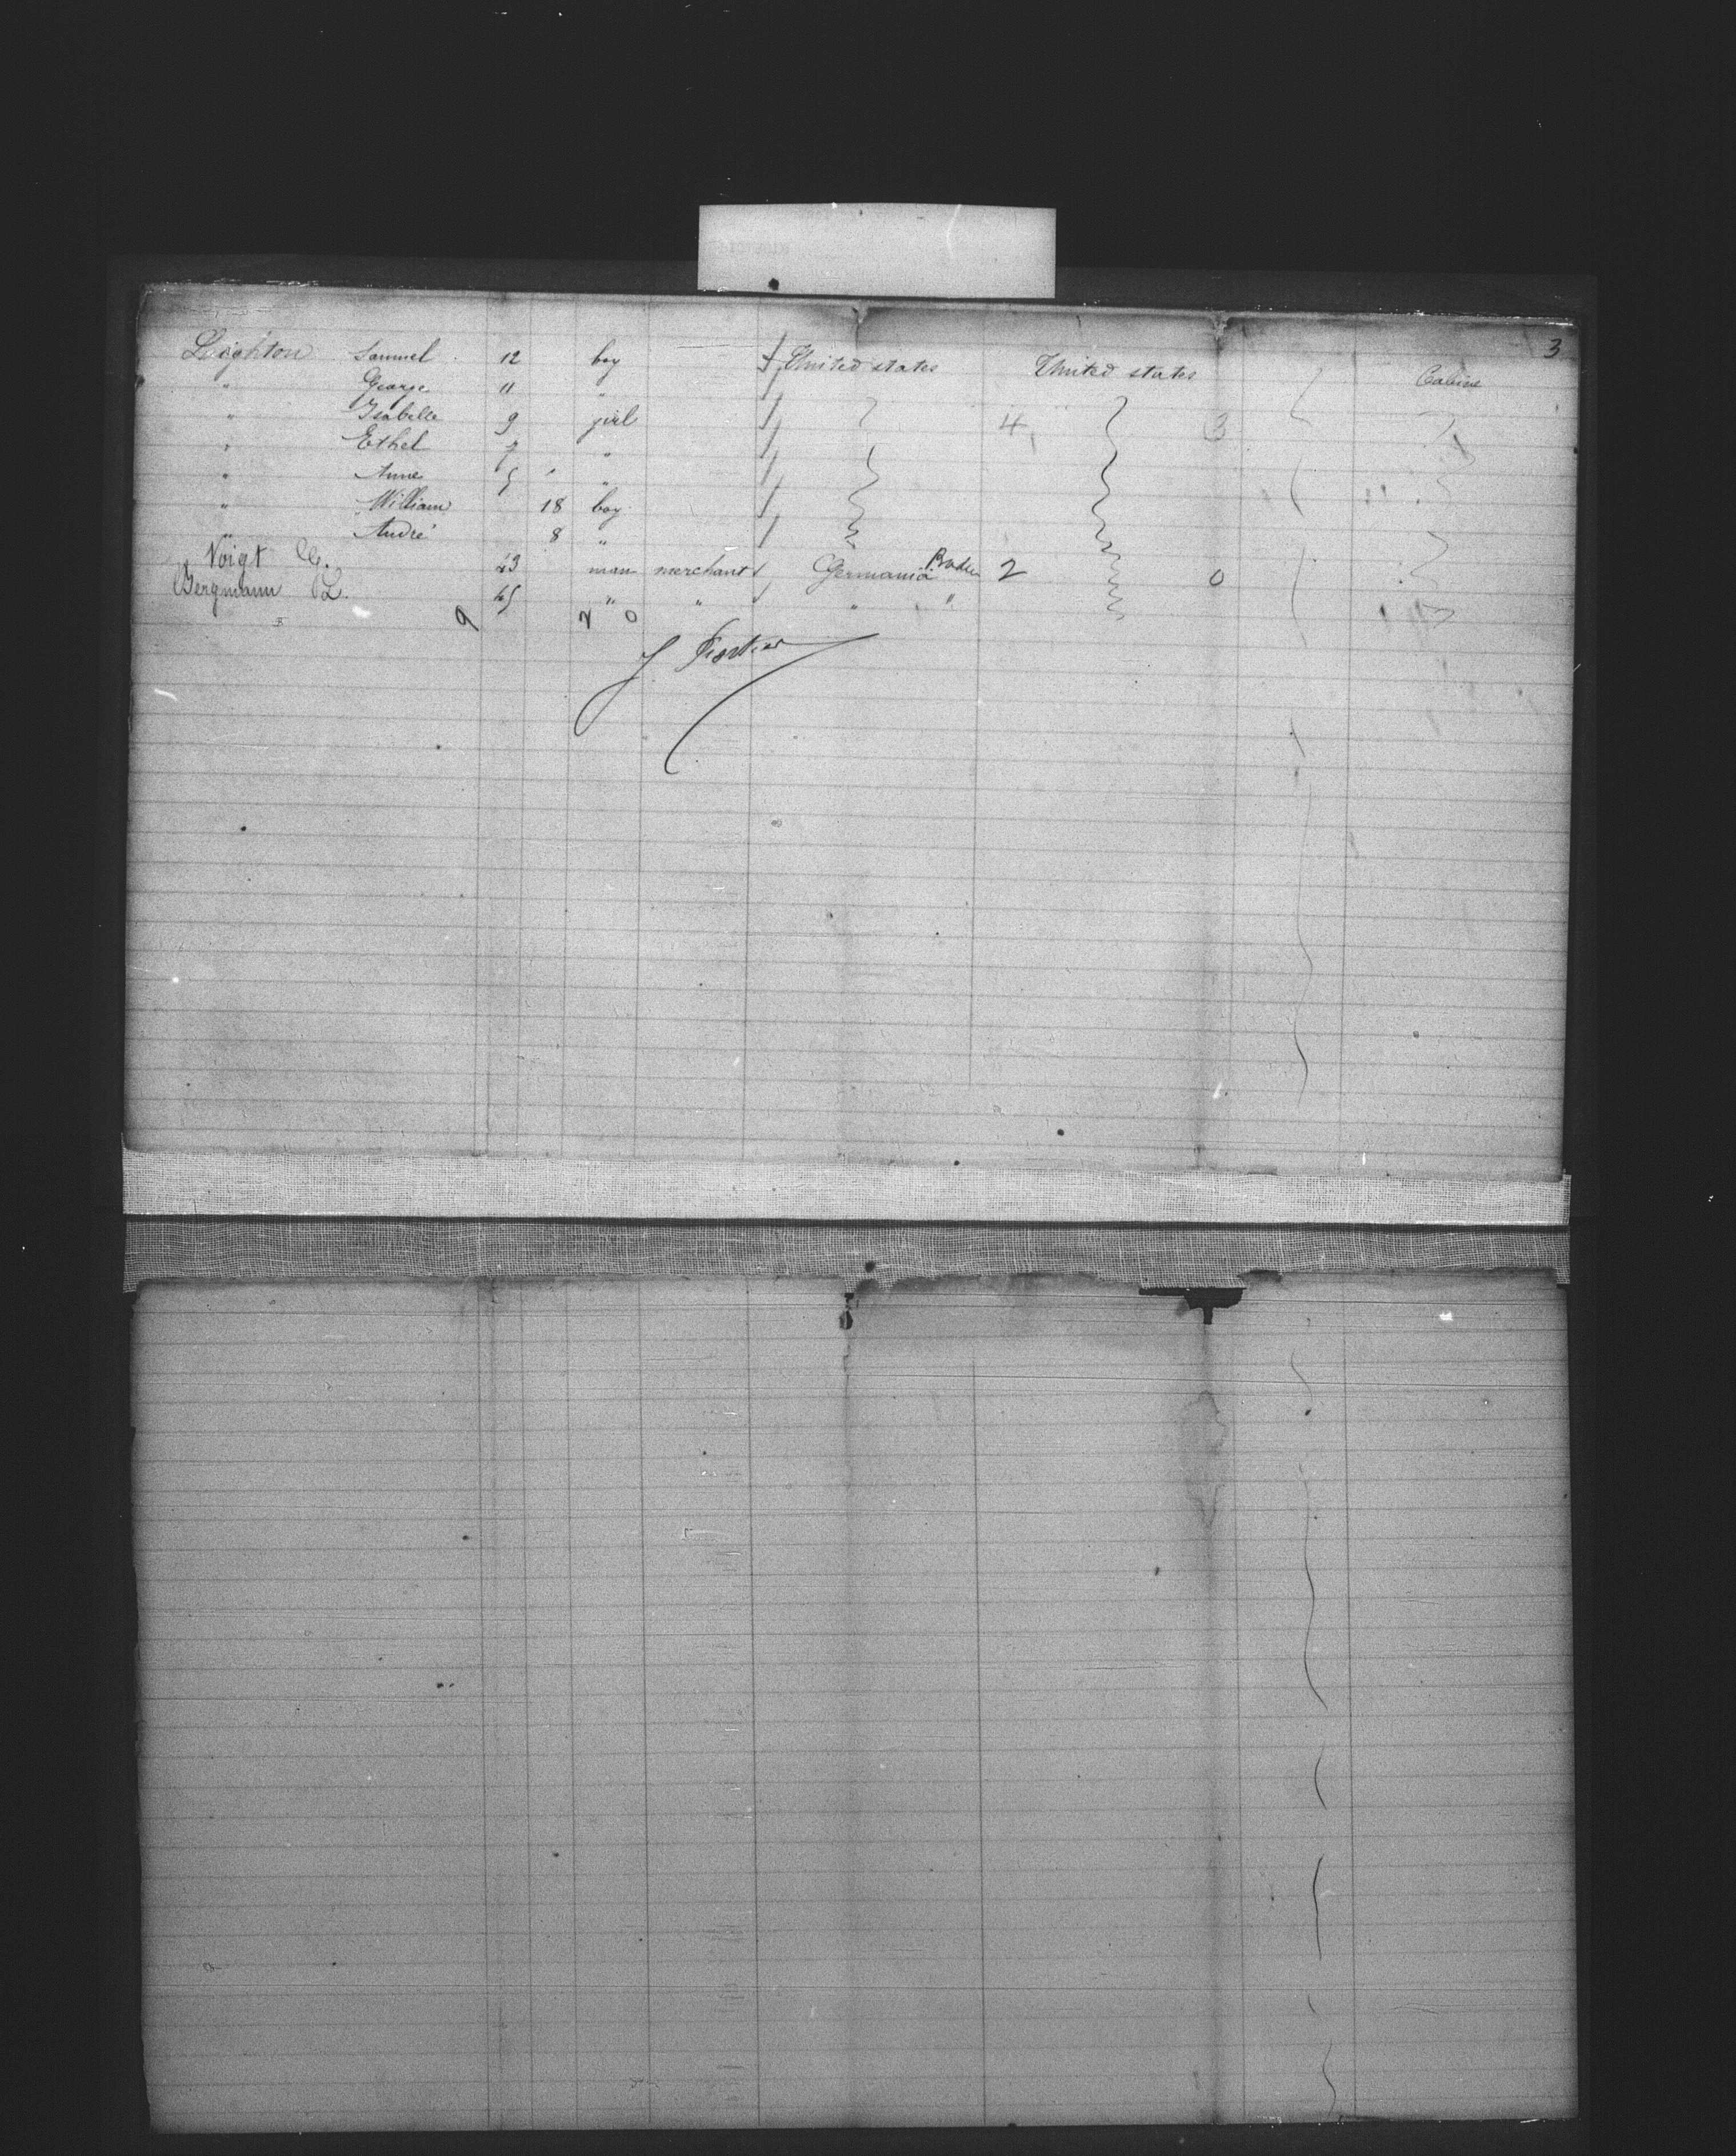 3
Leighton Samuel 12 boy United states United states Cabine
" George 11 "
" Isabelle 9 girl 4 3
" Ethel 7 "
" Anne 5 "
" William 18 boy
" André 8 "
Voigt 43 man merchant Germania Baden 2 0
Bergmann L. 45 " " " "
9 2 0
J Fortier